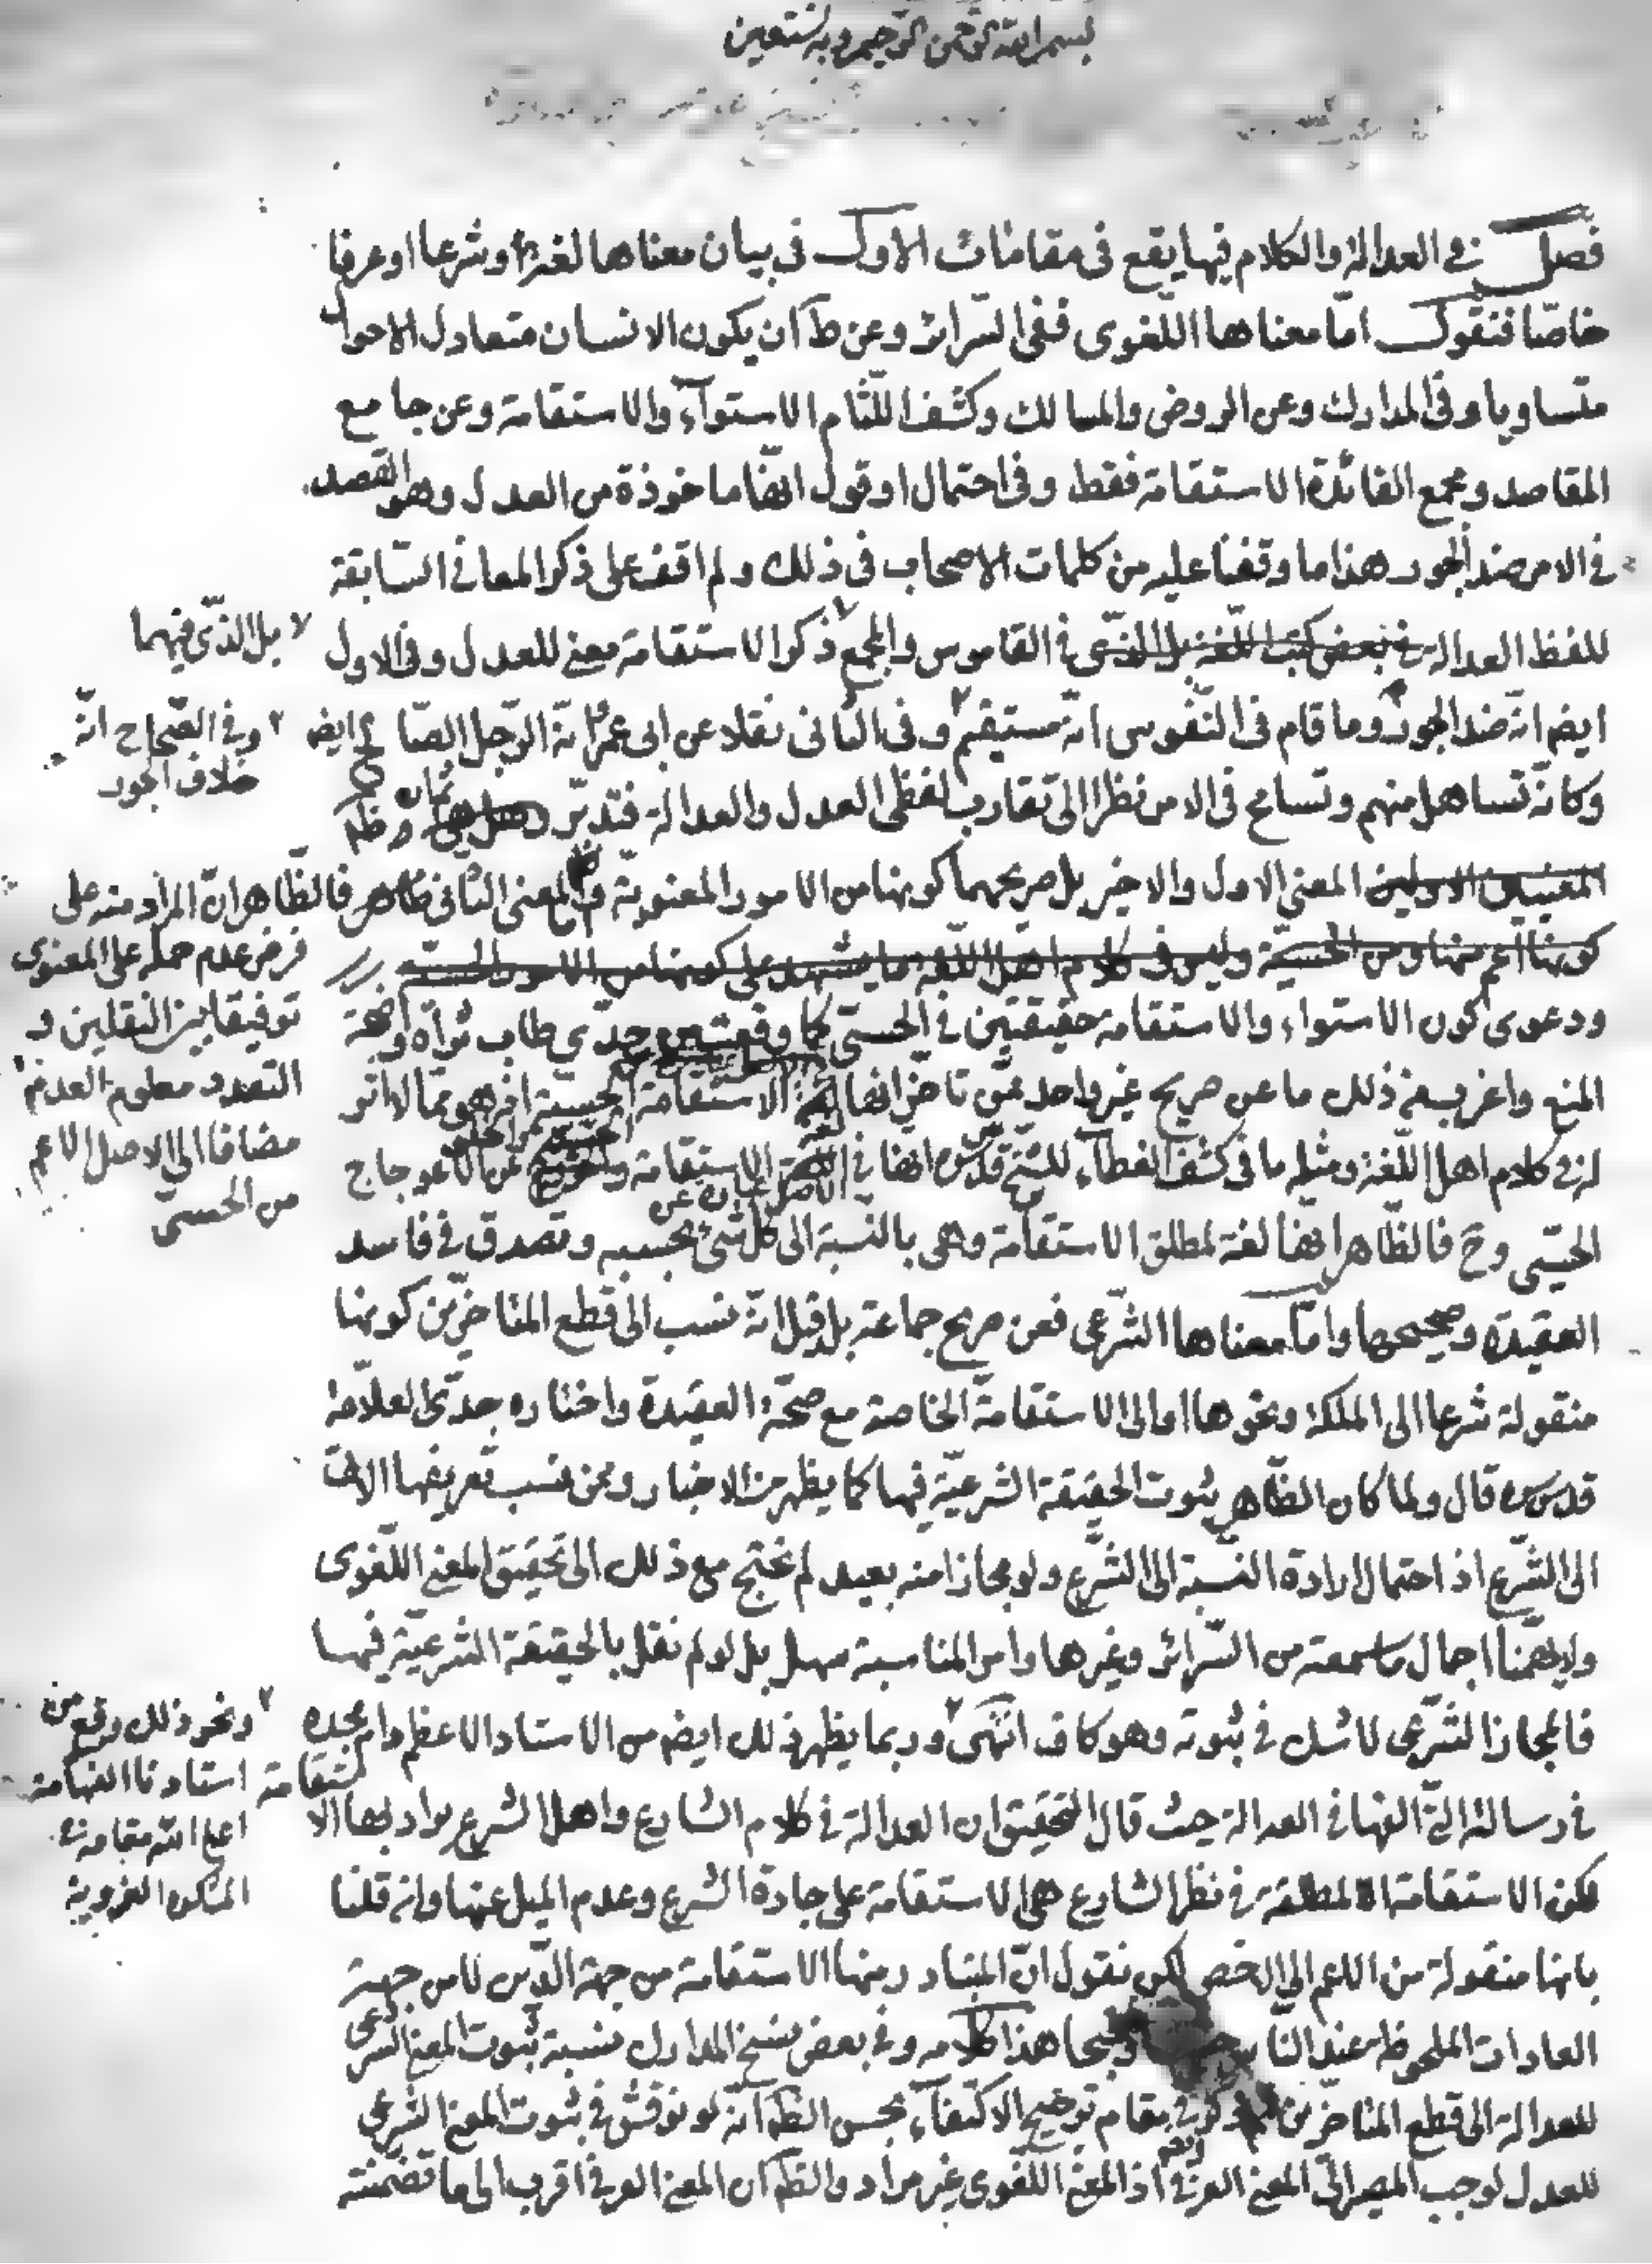 بسم الله الرحمن الرحيم وبه نستعين
فصل في العدالة والكلام فيها يقع في مقامات الاول في بيان معناها لغة وشرعا او عرفا
خاصا فنقول اما معناها اللغوى ففى السرائر وعن ط ان يكون الانسان متعادل الاحوال
متساويا وفى المدارك وعن الروض والمسالك وكشف اللثام الاستوآء والاستقامة وعن جامع
المقاصد ومجمع الفائدة الاستقامة فقط وفى احتمال او قول انها ماخوذة من العدل وهو القصد
في الامر ضد الجور هذا ما وقفنا عليه من كلمات الاصحاب فى ذلك ولم اقف على ذكر المعاني السابقة
للفظ العدالة في بعض كتب اللغة بل الذى في القاموس والمجمع ذكر الاستقامة معنى للعدل وفى الاول
بل الذى فيهما
ايضم انه ضد الجور وما قام فى النفوس انه مستقيم وفى الثانى نقلا عن ابى عمر انه الرجل الصالح ايضم
وفي الصحاح انه
خلاف الجور
وكانه تساهل منهم وتسامح فى الامر نظرا الى تقارب لفظى العدل والعدالة فتدبر
المعنيين الاولين المعنى الاول والاخير بل صريحهما كونها من الامور المعنوية المعنى الثانى فالظاهر ان المراد منه على
كونها اعم منها ومن الحسية وليس فى كلام اهل اللغة ما يشهد على كونها من الامور الحسية
فرض عدم حمله على المعنوى
توفيقا بين النقلين و
التعدد معلوم العدم
مضافا الى الاصل الاعم
من الحسى
ودعوى كون الاستواء والاستقامة حقيقتين في الحسى كما وقعت من جدى طاب ثراه واضحة
المنع واغرب من ذلك ما عن صريح غير واحد ممن تاخر انها لغة الاستقامة الحسية اذ هو مما لا اثر
له في كلام اهل اللغة ومثله ما فى كشف الغطآء للشيخ قدس سره انها في الاصل عبارة عن الاستقامة الاعوجاج
الحسى وح فالظاهر انها لغة لمطلق الاستقامة وهى بالنسبة الى كل شئ بحسبه وتصدق في فاسد
العقيدة وصحيحها واما معناها الشرعى فعن صريح جماعة بل قيل انه نسب الى قطع المتاخرين كونها
منقولة شرعا الى الملكة ونحوها او الى الاستقامة الخاصة مع صحة العقيدة واختاره جدى العلامة
قدس سره قال ولما كان الظاهر ثبوت الحقيقة الشرعية فيها كما يظهر من الاخبار وممن نسب تعريفها الاتى
الى الشرع اذ احتمال ارادة النسبة الى الشرع ولو مجازا منه بعيد لم نحتج مع ذلك الى تحقيق المعنى اللغوى
ولا يهمنا اجمال ما سمعته من السرائر وغيرها وامر المناسبة سهل بل لو لم نقل بالحقيقة الشرعية فيها
فالمجاز الشرعى لا شك في ثبوته وهو كاف انتهى وربما يظهر ذلك ايضم من الاستاد الاعظم دام مجده
ونحو ذلك وقع من
استادنا الفهامة
اعلى الله مقامه في
في رسالته التى الفها في العدالة حيث قال التحقيق ان العدالة في كلام الشارع واهل الشرع يراد بها الاستقامة
لكن الاستقامة المطلقة في نظر الشارع هى الاستقامة على جادة الشرع وعدم الميل عنها وان قلنا
بانها منقولة من الاعم الى الاخص لكن نقول ان المتبادر منها الاستقامة من جهة الدين لا من جهة
العادات الملحوظة عند الناس هذا كلامه وفي بعض نسخ المدارك نسبة ثبوت المعنى الشرعى
للعدالة الى قطع المتاخرين في مقام توضيح الاكتفآء بحسن الظاهر انه لو نوقش في ثبوت المعنى الشرعى
للعدل لوجب المصير الى المعنى العرفى اذ المعنى اللغوى غير مراد والظم ان المعنى العرفى اقرب الى ما تضمنته